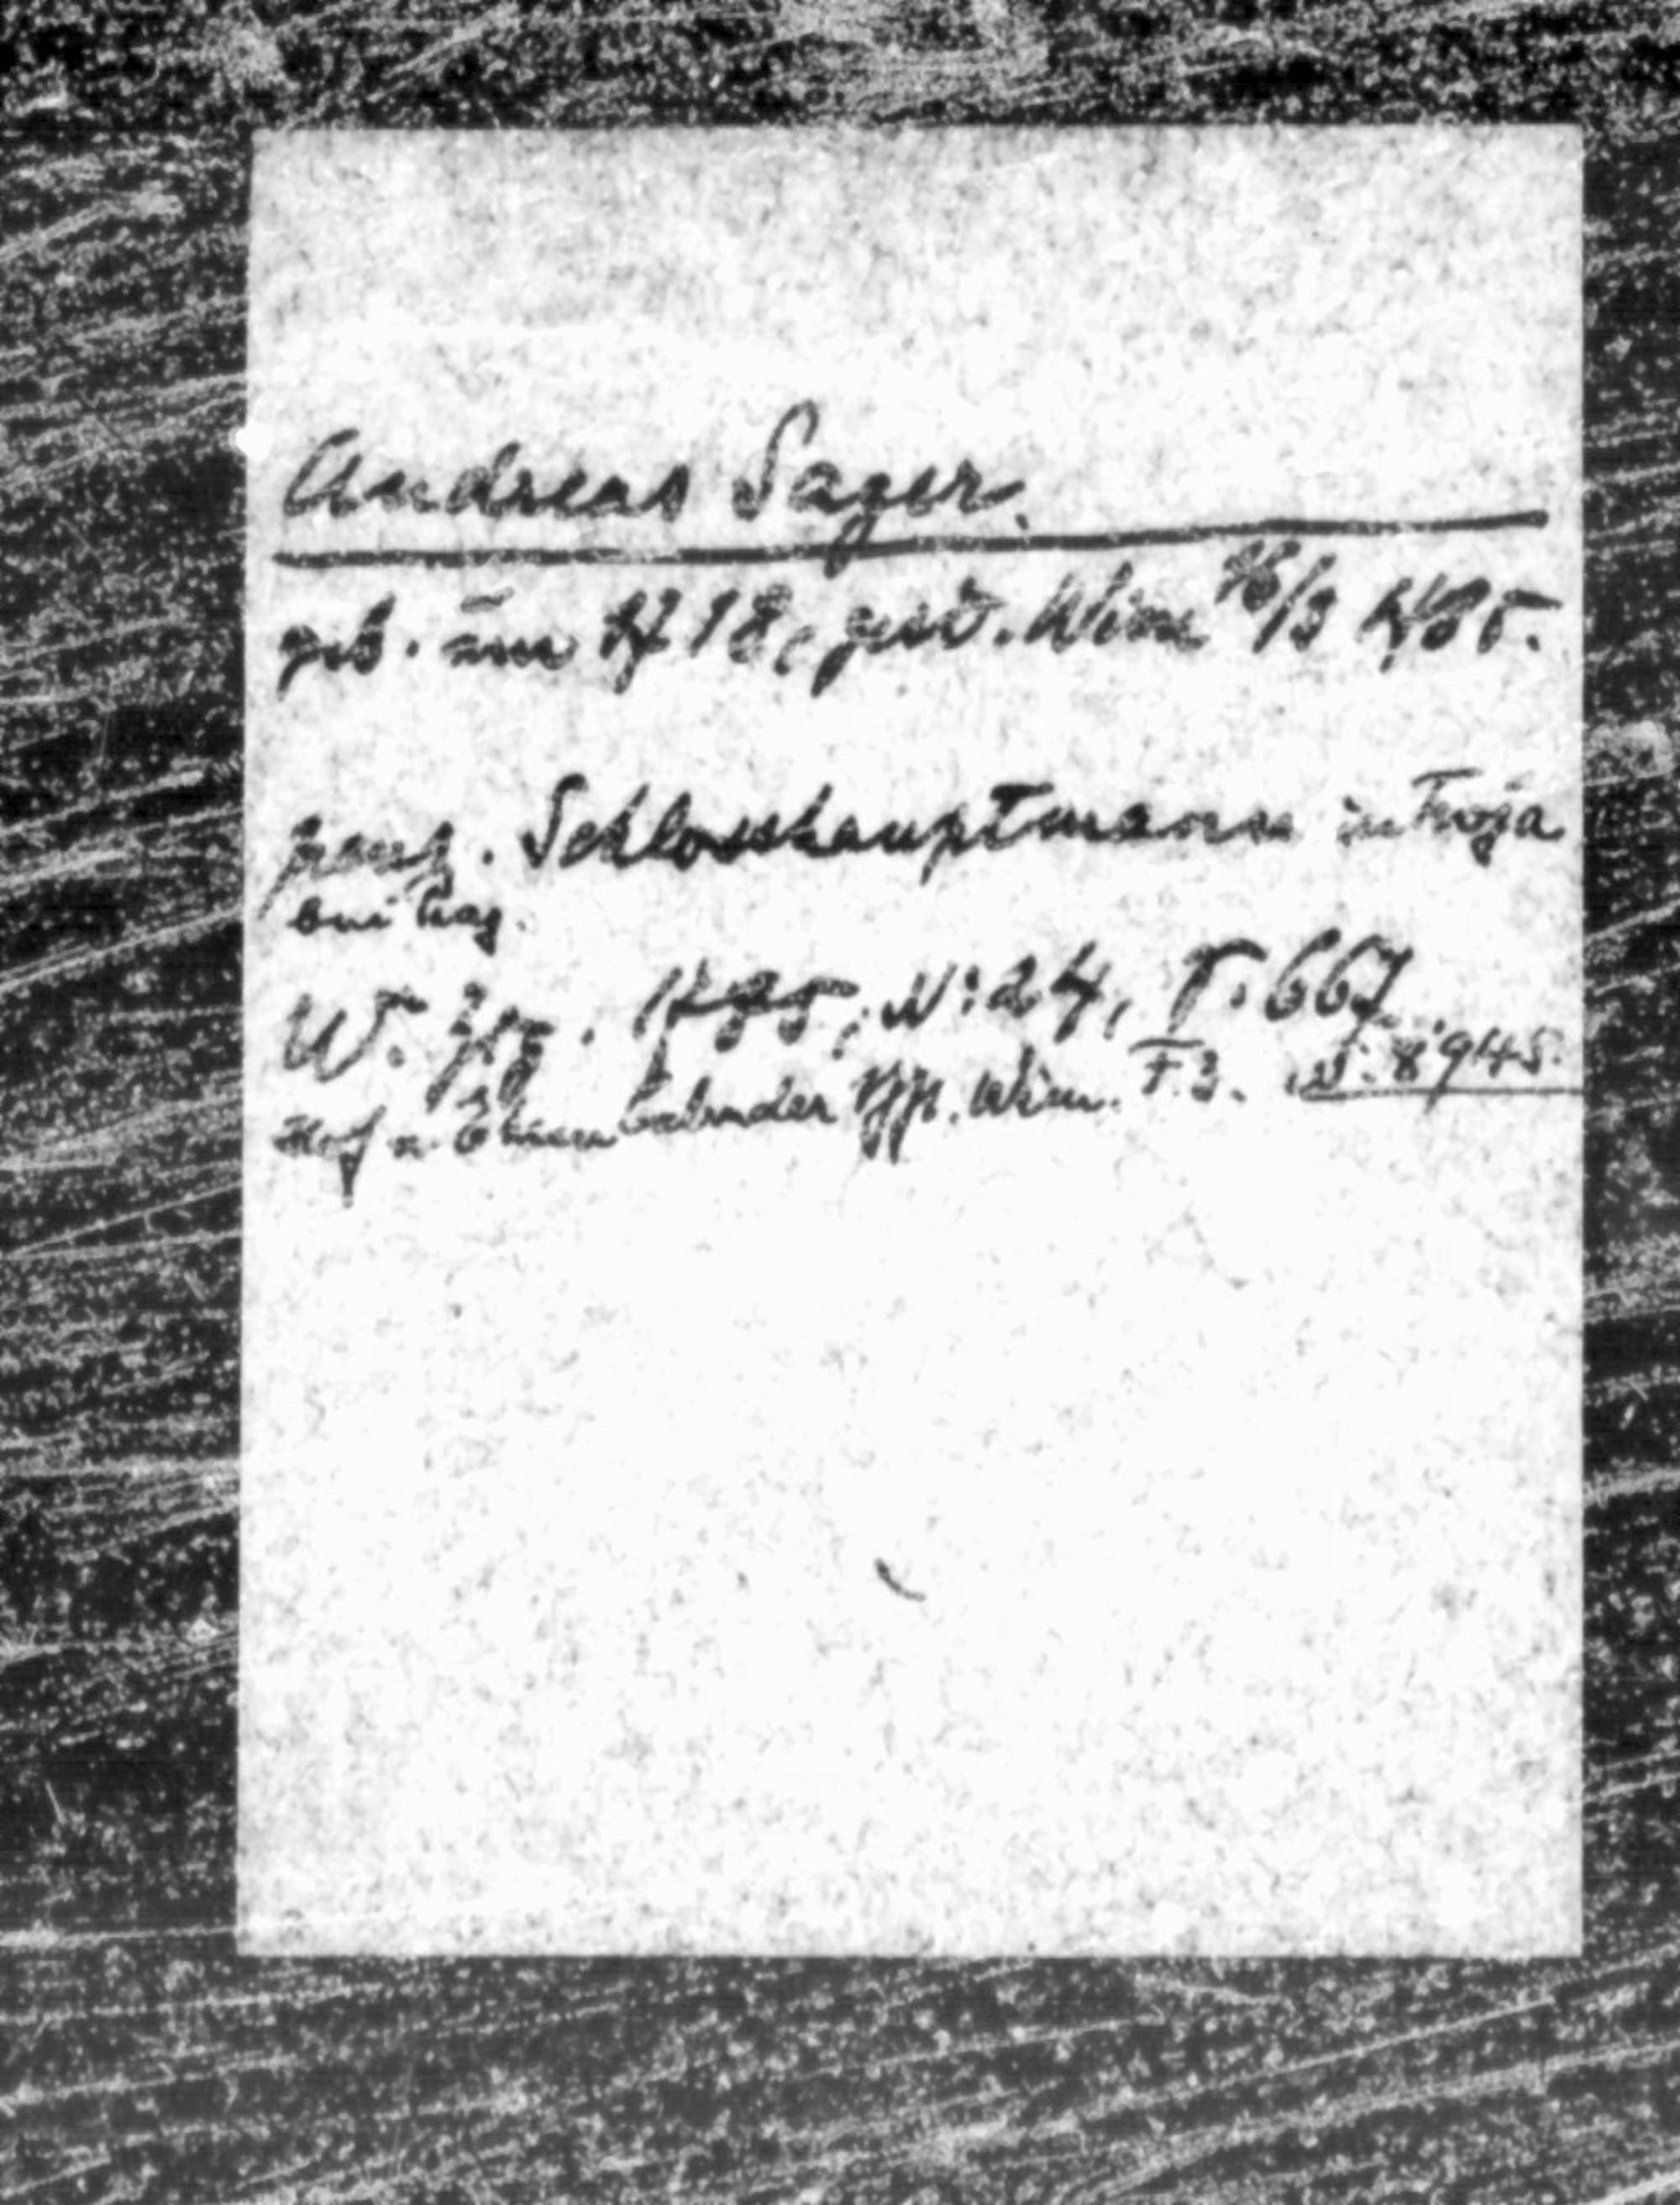 Andreas Sager.
geb. um 1718, gest. Wien 16/3 1785.
pens. Schlosshauptmann in Troja
bei Prag.
W. Ztg. 1785, N: 24, S. 667.
Hof u. Wien. F. 3. N: 8945.